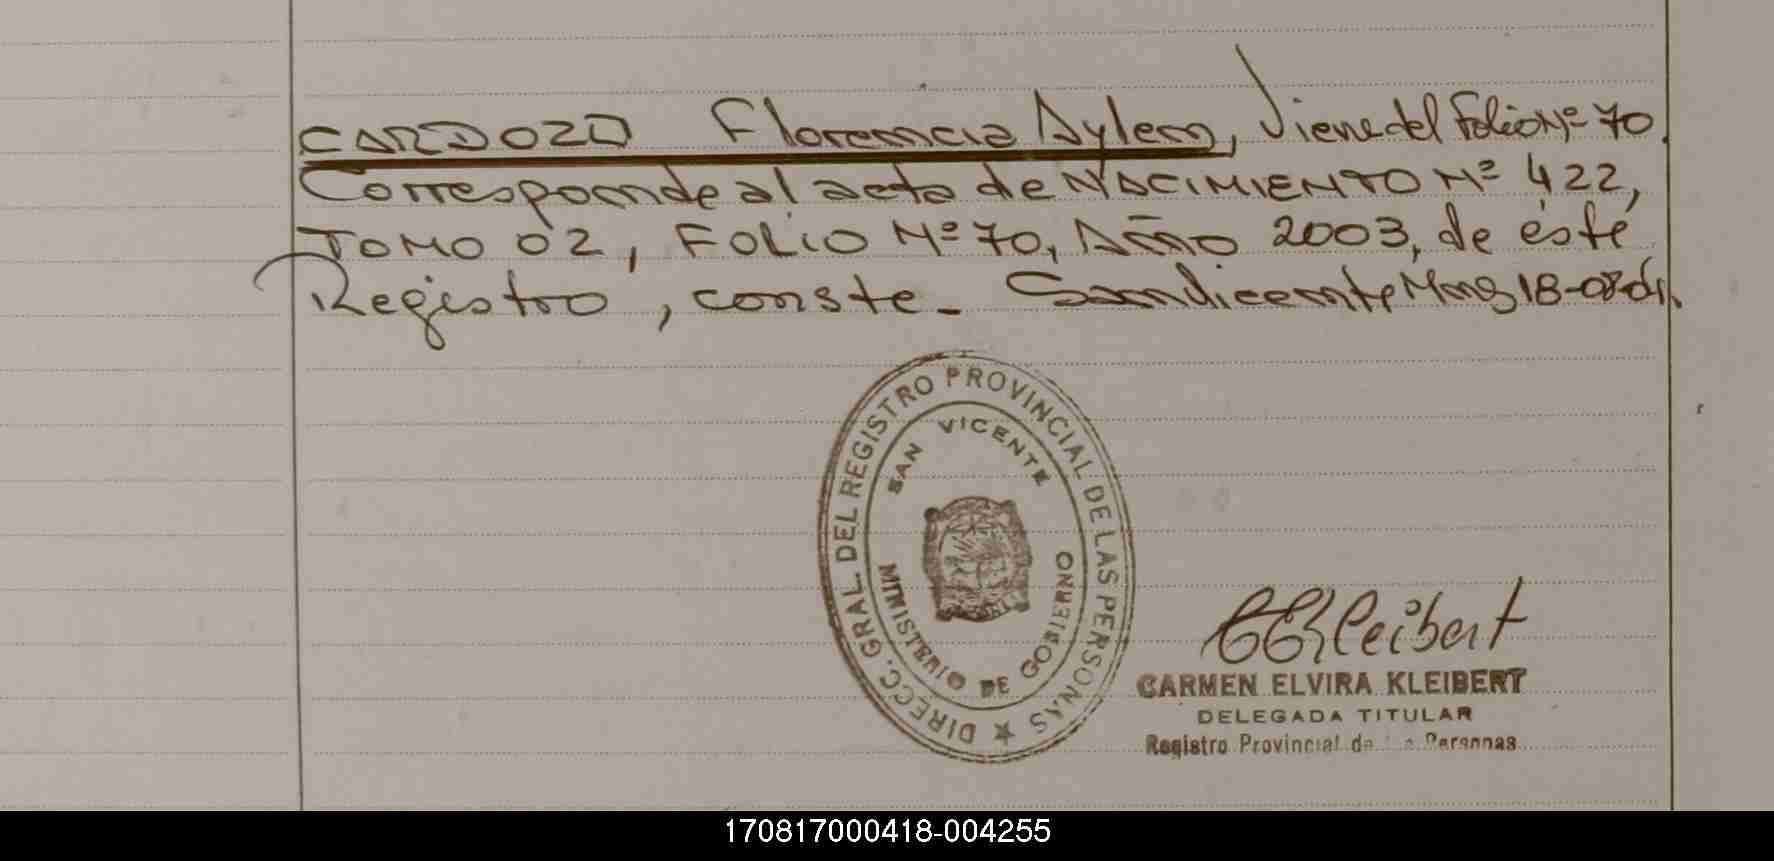 CARDOZO Florencia Aylen, Viene del Folio Nº 70.
Corresponde al acta de NACIMIENTO Nº 422,
TOMO 02, FOLIO Nº 70, AÑO 2003, de éste
Registro, conste. San Vicente Mns 18-08-
DIRECC. GRAL. DEL REGISTRO PROVINCIAL DE LAS PERSONAS
SAN VICENTE
MINISTERIO DE GOBIERNO
CEKleibert
CARMEN ELVIRA KLEIBERT
DELEGADA TITULAR
Registro Provincial de Personas
170817000418-004255